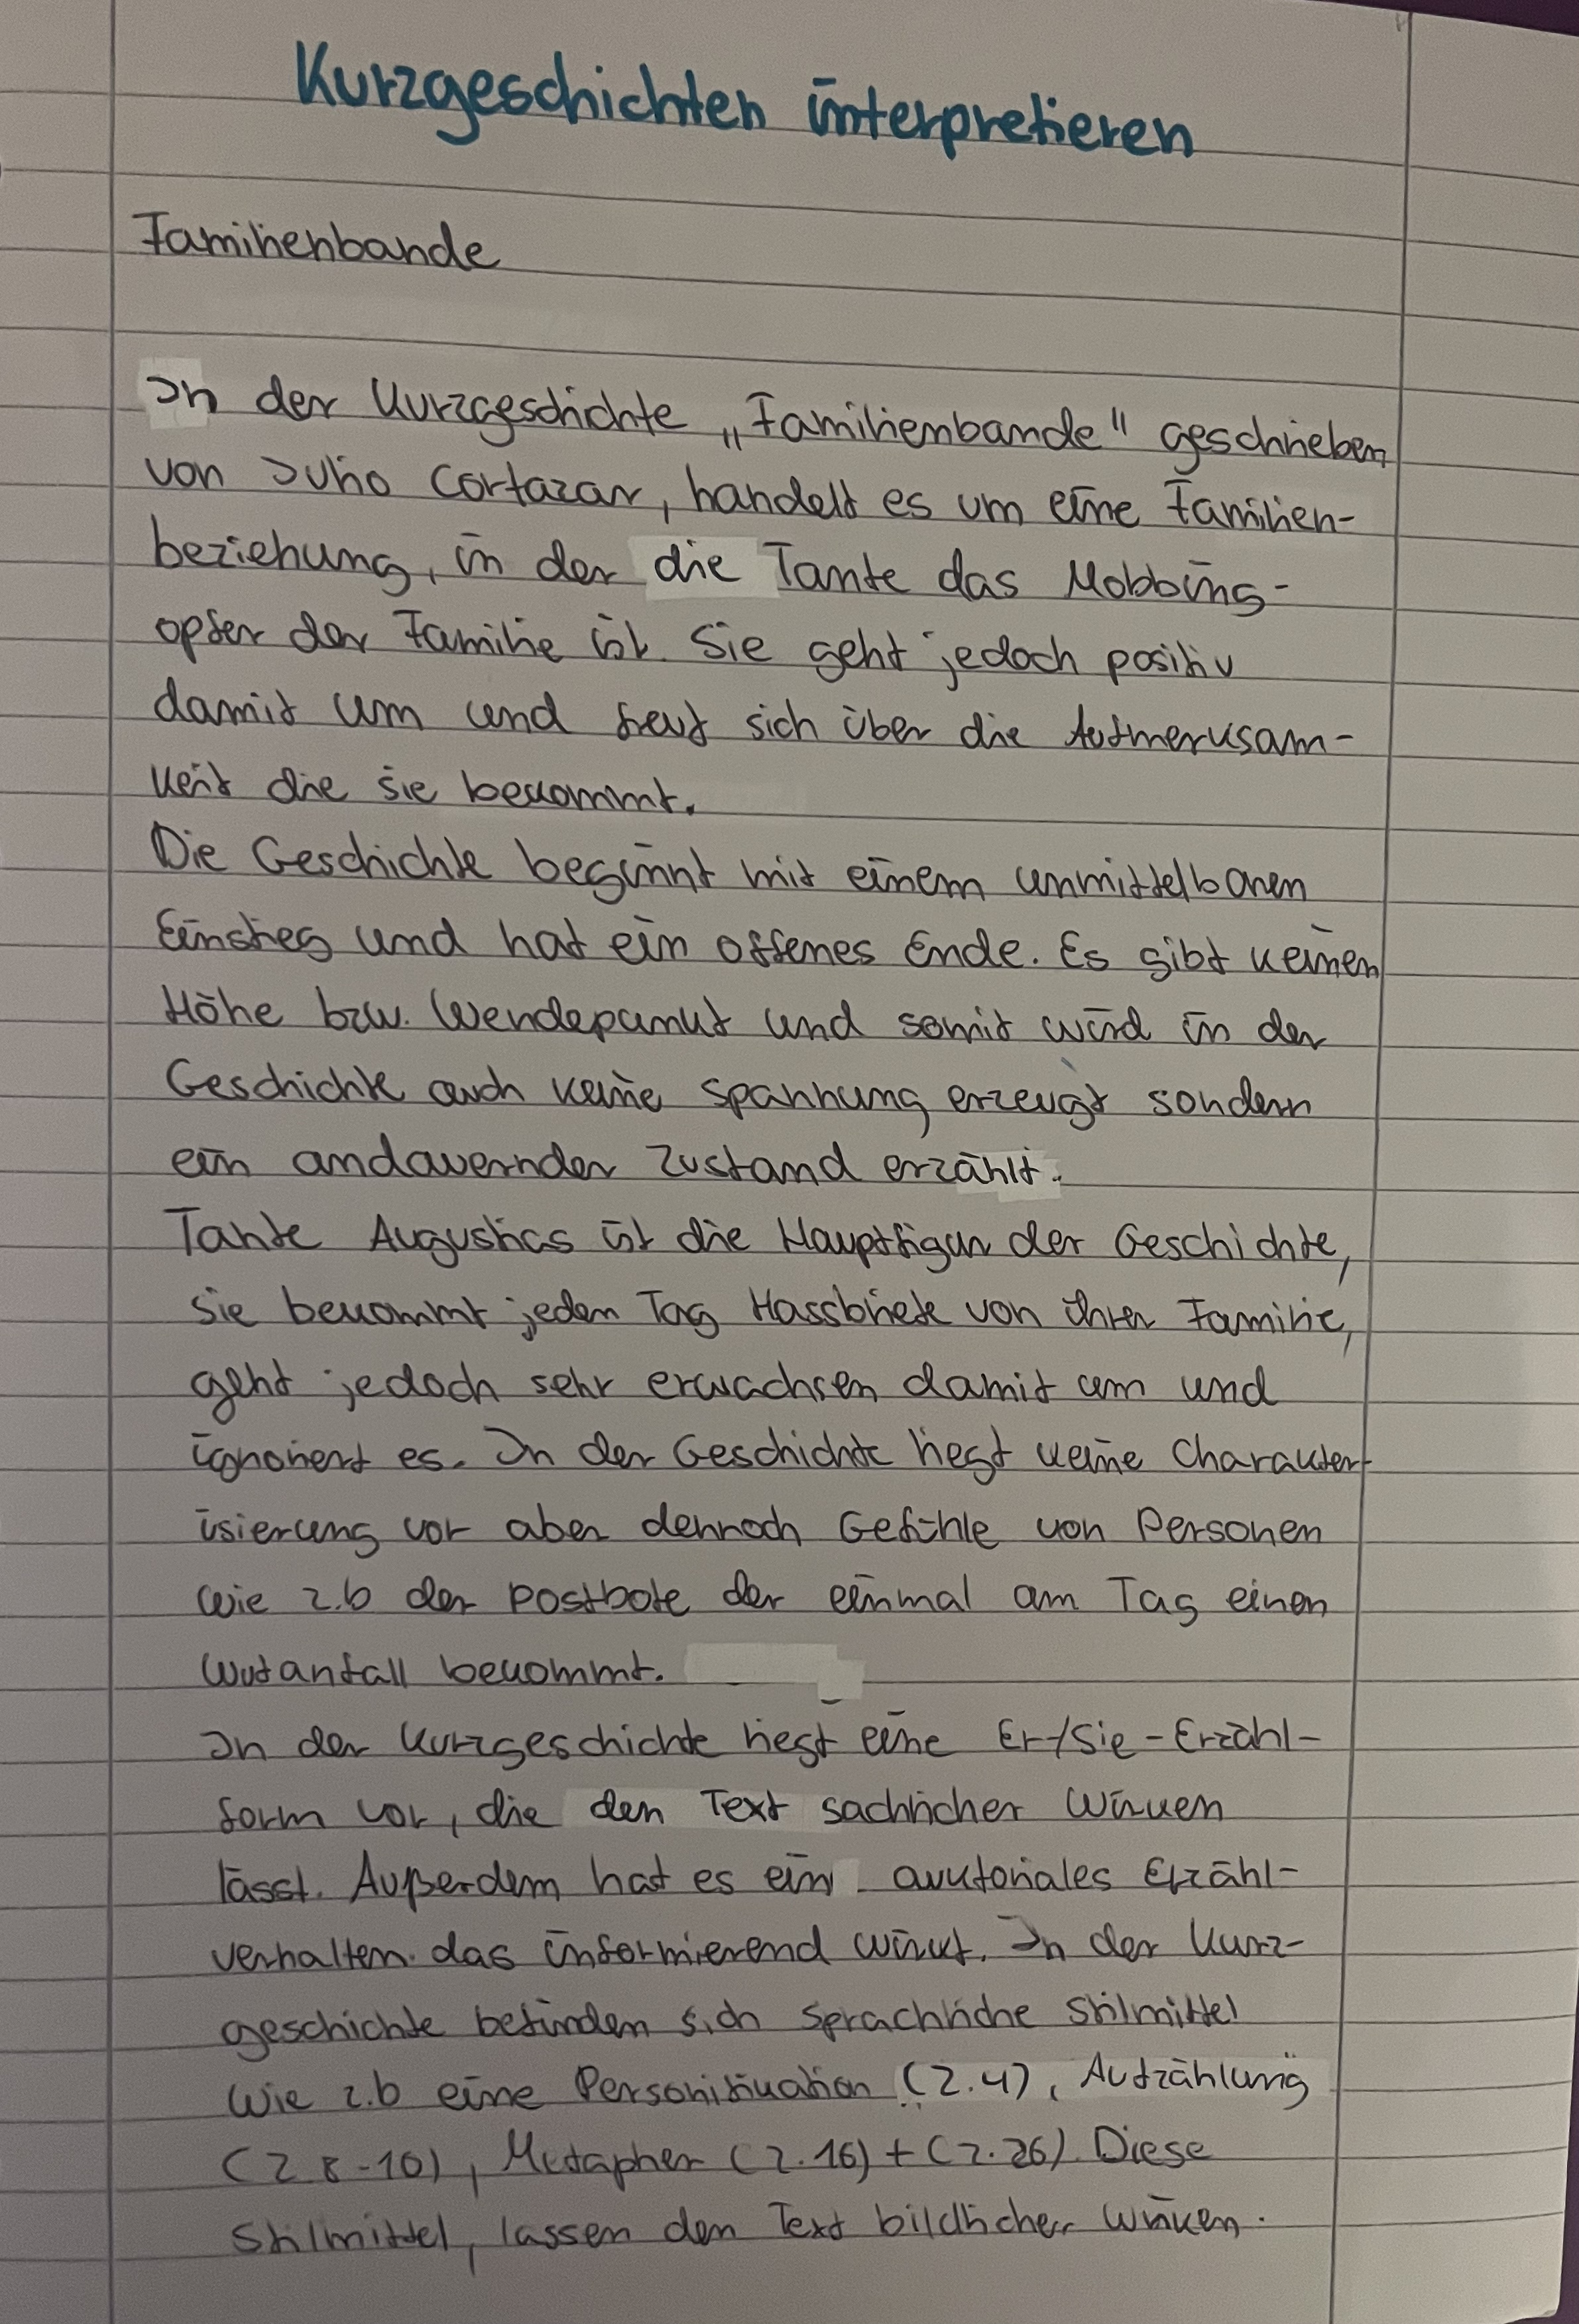 Kurzgeschichten interpretieren
Familienbande
In der Kurzgeschichte „Familienbande" geschrieben
von Julio Cortazar, handelt es um eine Familien-
beziehung, in der die Tante das Mobbing-
opfer der Familie ist. Sie geht jedoch positiv
damit um und freut sich über die Aufmerksam-
keit die sie bekommt.
Die Geschichte beginnt mit einem unmittelbaren
Einstieg und hat ein offenes Ende. Es gibt keinen
Höhe bzw. Wendepunkt und somit wird in der
Geschichte auch keine Spannung erzeugt sondern
ein andauernder Zustand erzählt.
Tante Augustias ist die Hauptfigur der Geschichte,
sie bekommt jeden Tag Hassbriefe von ihrer Familie,
geht jedoch sehr erwachsen damit um und
ignoriert es. In der Geschichte liegt keine Charakter-
isierung vor aber dennoch Gefühle von Personen
wie z.b der Postbote der einmal am Tag einen
Wutanfall bekommt.
In der Kurzgeschichte liegt eine Er-/Sie-Erzähl-
form vor, die den Text sachlicher wirken
lässt. Außerdem hat es ein auktoriales Erzähl-
verhalten das informierend wirkt. In der Kurz-
geschichte befinden sich sprachliche Stilmittel
wie z.b eine Personifikation (Z.4), Aufzählung
(Z 8-10), Metapher (Z.16) + (Z.26). Diese
Stilmittel, lassen den Text bildlicher wirken.